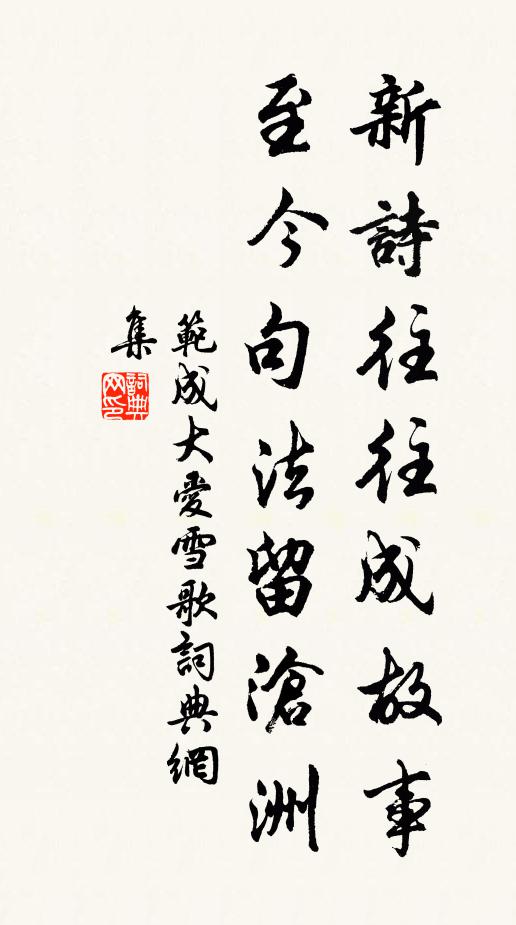 新詩往往成故事
至今句法留滄洲
範成大愛雪歌詞典網
集
詞典
网印